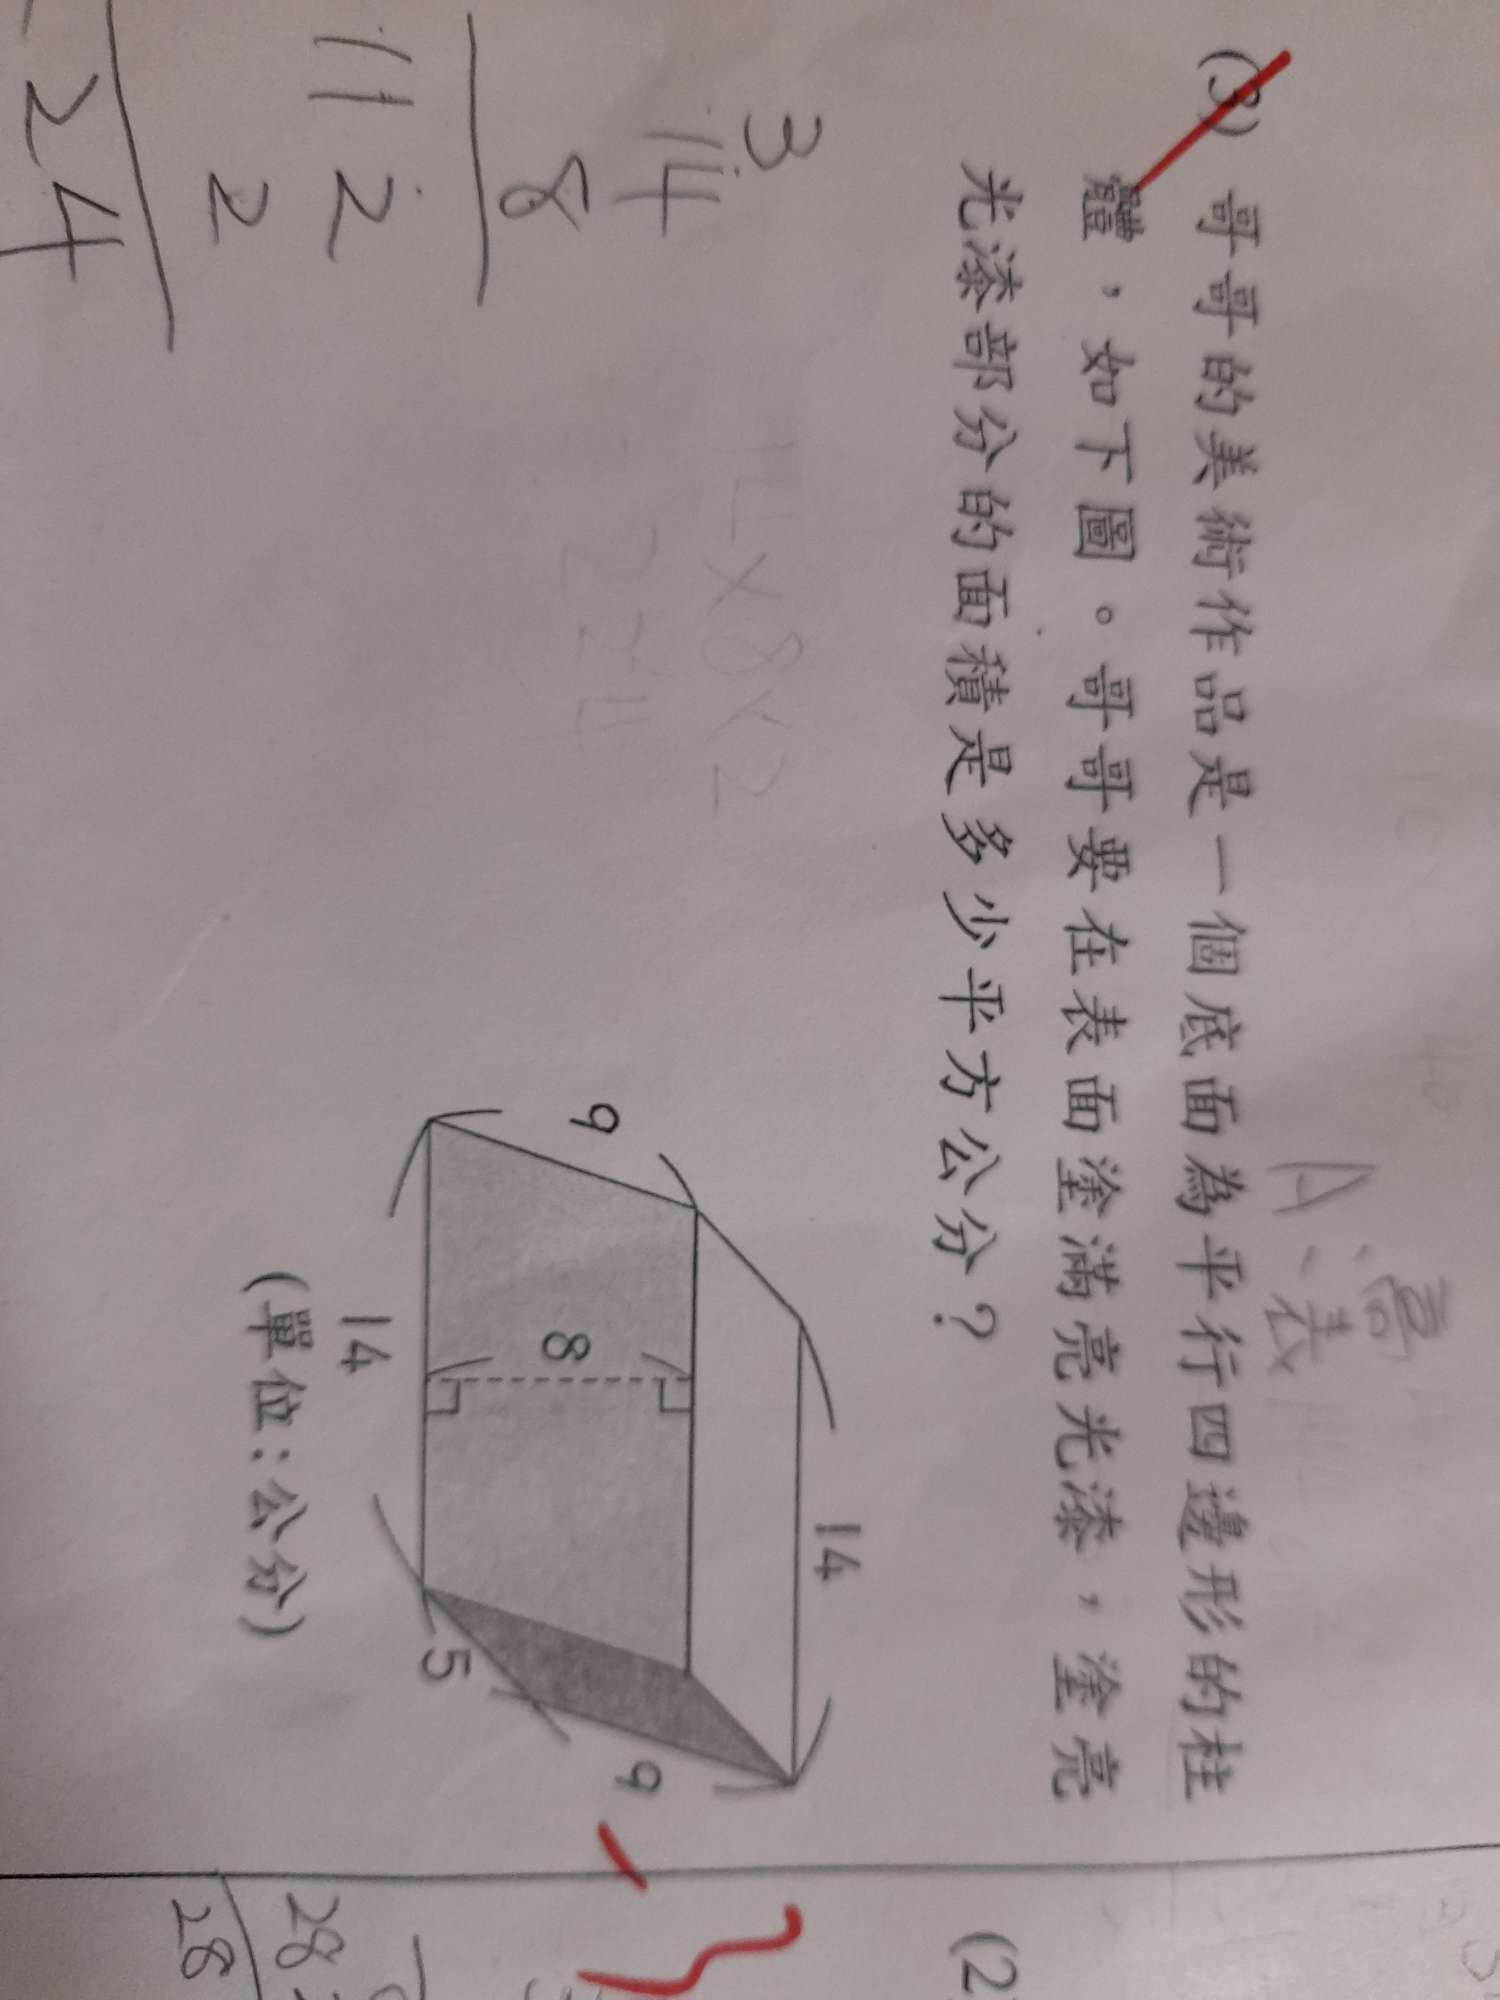 (3) 哥哥的美術作品是一個底面為平行四邊形的柱
體，如下圖。哥哥要在表面塗滿亮光漆，塗亮
光漆部分的面積是多少平方公分？
14
9
8
9
5
14
(單位：公分)
3
14
8
112
2
224
14×8×2
224
(2
28
28